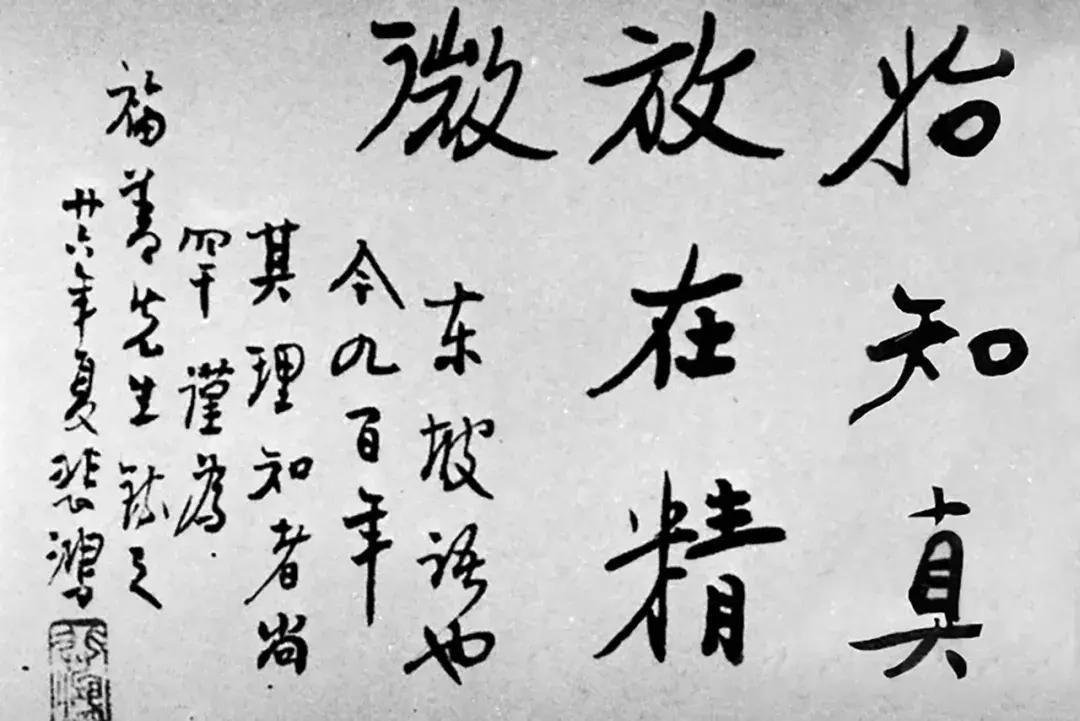 始知真
放在精
微
东坡語也
今九百年
其理知者尚
罕謹為
福善先生錄之
廿六年夏悲鴻